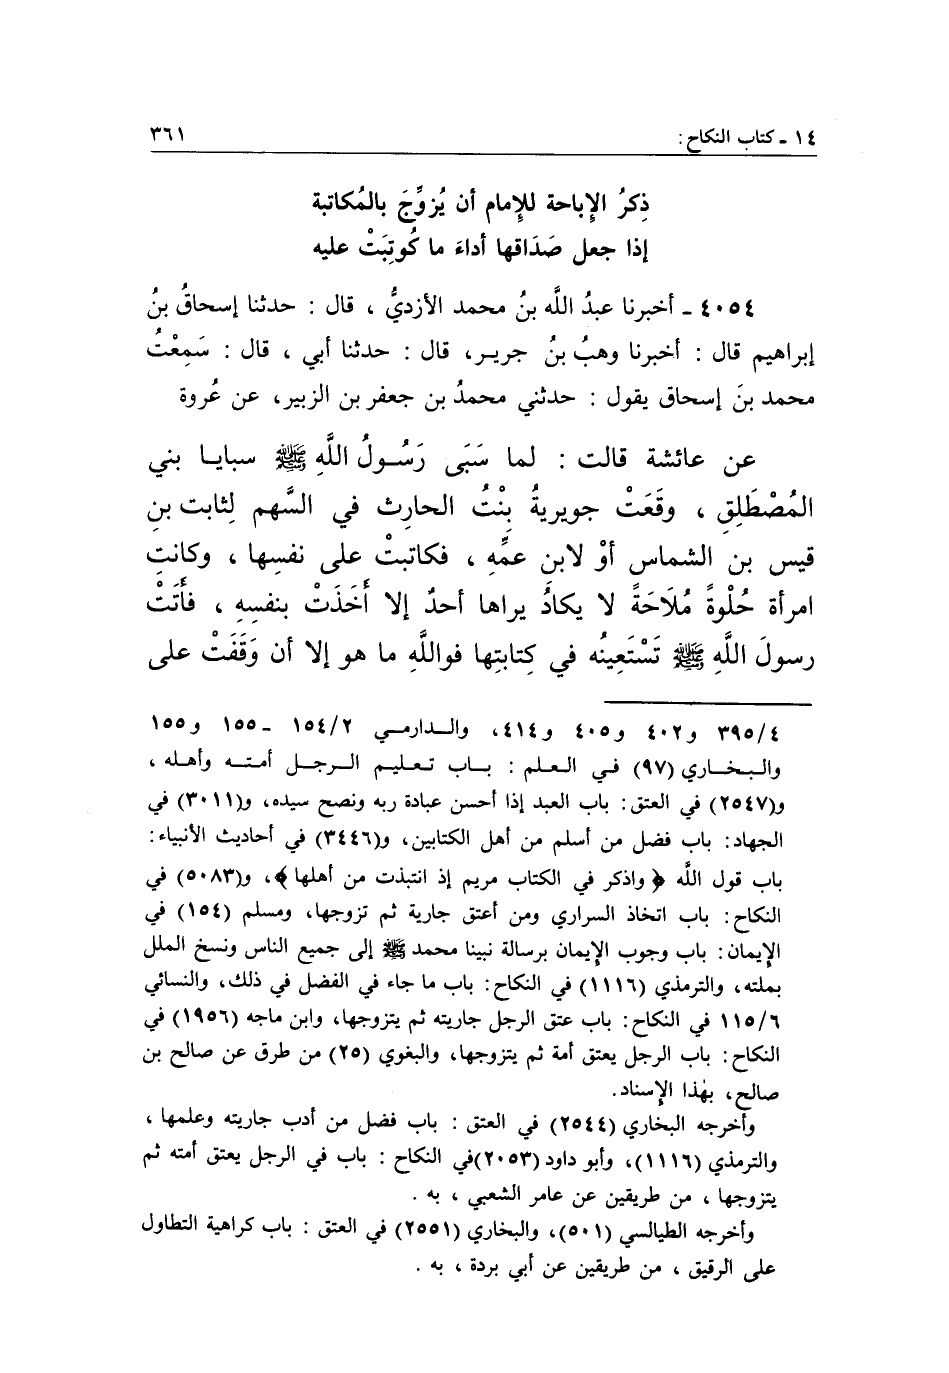 ١٤ ـ كتاب النكاح : ٣٦١
ذِكرُ الإِباحة للإِمام أن يُزوِّجَ بالمُكاتبة
إذا جعل صَدَاقها أداءَ ما كُوتِبَتْ عليه
٤٠٥٤ ـ أخبرنا عبدُ اللَّه بنُ محمد الأزديُّ ، قال : حدثنا إسحاقُ بنُ
إبراهيم قال : أخبرنا وهبُ بنُ جريـر، قال : حدثنا أبي ، قال : سَمِعْتُ
محمد بنَ إسحاق يقول : حدثني محمدُ بن جعفر بن الزبير، عن عُروة
عن عائشة قالت : لما سَبَى رَسُـولُ اللَّهِ ﷺ سبايـا بني
المُصْطَلِقِ ، وقَعَتْ جويريةُ بِنْتُ الحارِث في السَّهم لِثابت بنِ
قيس بن الشماس أوْ لابن عمِّه ، فكاتبتْ على نفسِها ، وكانتِ
امرأة حُلْوةً مُلَاحَةً لا يكادُ يراها أحدٌ إلا أَخَذَتْ بنفسِهِ ، فأَتَتْ
رسولَ اللَّهِ ﷺ تَسْتَعِينُه في كِتابتِها فواللَّهِ ما هو إلا أن وَقَفَتْ على
٣٩٥/٤ و٤٠٢ و٤٠٥ و٤١٤، والـدارمـي ١٥٤/٢ ـ ١٥٥ و١٥٥
والبـخـاري (٩٧) فـي العـلم : بـاب تـعـليـم الـرجـل أمتـه وأهـله ،
و(٢٥٤٧) في العتق: باب العبد إذا أحسن عبادة ربه ونصح سيده، و(٣٠١١) في
الجهاد: باب فضل من أسلم من أهل الكتابين، و(٣٤٤٦) في أحاديث الأنبياء:
باب قول اللَّه ﴿واذكر في الكتاب مريم إذ انتبذت من أهلها﴾، و(٥٠٨٣) في
النكاح: باب اتخاذ السراري ومن أعتق جارية ثم تزوجها، ومسلم (١٥٤) في
الإِيمان: باب وجوب الإِيمان برسالة نبينا محمد ﷺ إلى جميع الناس ونسخ الملل
بملته، والترمذي (١١١٦) في النكاح: باب ما جاء في الفضل في ذلك، والنسائي
١١٥/٦ في النكاح: باب عتق الرجل جاريته ثم يتزوجها، وابن ماجه (١٩٥٦) في
النكاح: باب الرجل يعتق أمة ثم يتزوجها، والبغوي (٢٥) من طرق عن صالح بن
صالح، بهٰذا الإِسناد.
وأخرجه البخاري (٢٥٤٤) في العتق : باب فضل من أدب جاريته وعلمها ،
والترمذي (١١١٦)، وأبو داود (٢٠٥٣)في النكاح : باب في الرجل يعتق أمته ثم
يتزوجها ، من طريقين عن عامر الشعبي ، به .
وأخرجه الطيالسي (٥٠١)، والبخاري (٢٥٥١) في العتق : باب كراهية التطاول
على الرقيق ، من طريقين عن أبي بردة ، به .